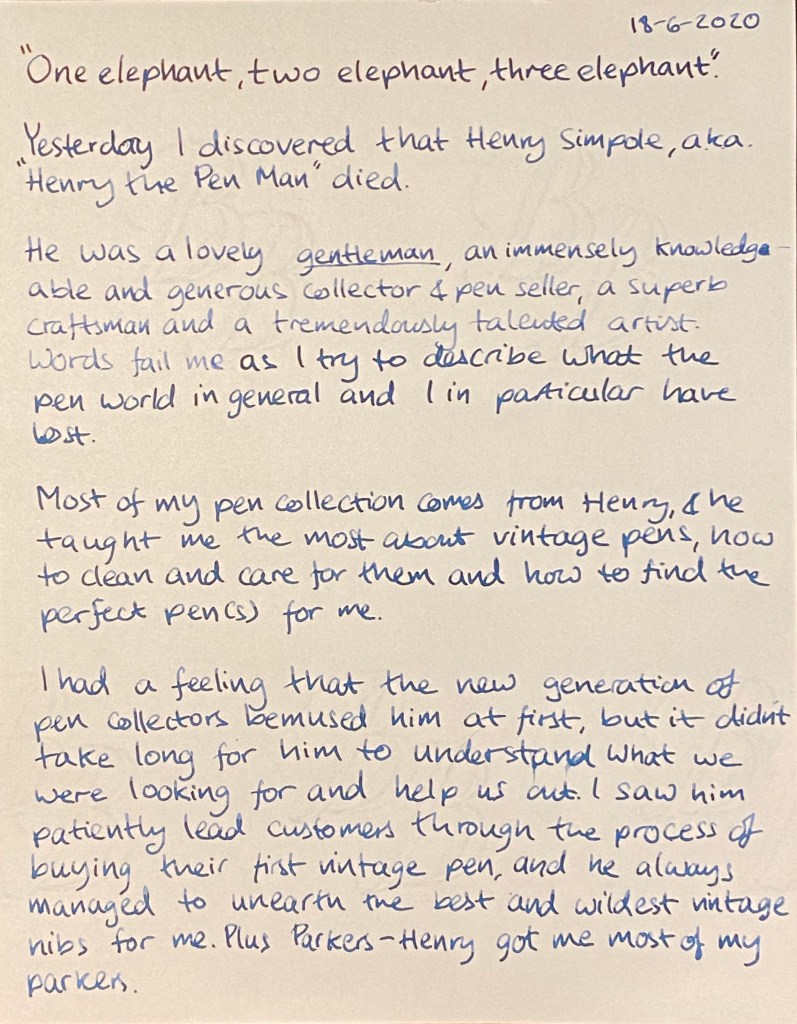 18-6-2020
"One elephant, two elephant, three elephant".
Yesterday I discovered that Henry Simpole, aka.
"Henry the Pen Man" died.
He was a lovely gentleman, an immensely knowledge-
able and generous collector & pen seller, a superb
craftsman and a tremendously talented artist.
Words fail me as I try to describe what the
pen world in general and I in particular have
lost.
Most of my pen collection comes from Henry, & he
taught me the most about vintage pens, how
to clean and care for them and how to find the
perfect pen(s) for me.
I had a feeling that the new generation of
pen collectors bemused him at first, but it didn't
take long for him to understand what we
were looking for and help us out. I saw him
patiently lead customers through the process of
buying their first vintage pen, and he always
managed to unearth the best and wildest vintage
nibs for me. Plus Parkers-Henry got me most of my
parkers.